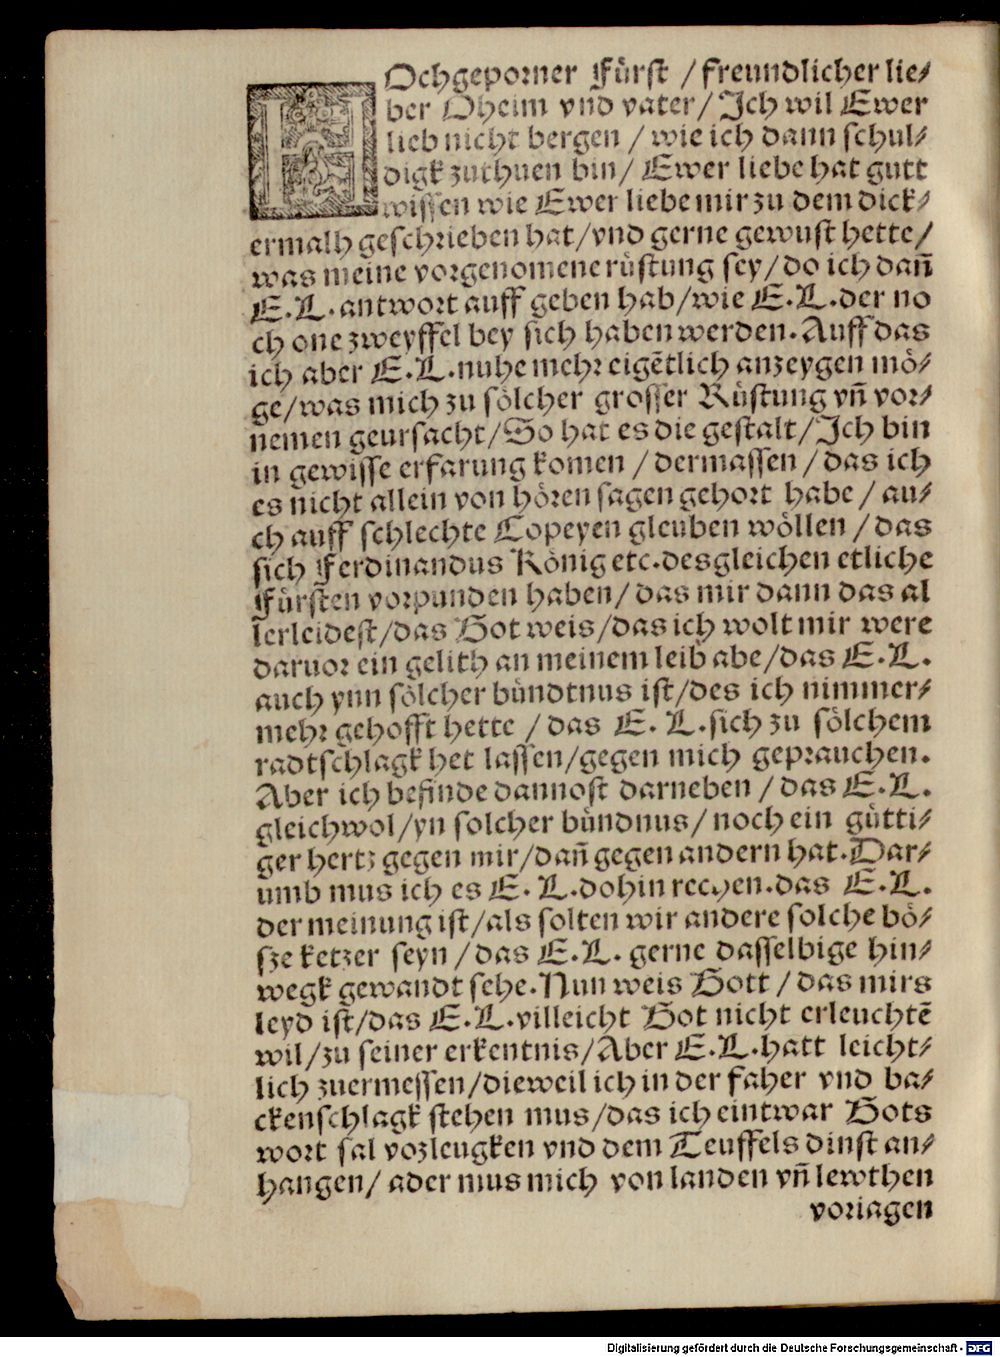 HOchgeporner Fürst / freundlicher lie⸗
ber Oheim vnd vater / Ich wil Ewer
lieb nicht bergen / wie ich dann schul⸗
digk zuthuen bin / Ewer liebe hat gutt
wissen wie Ewer liebe mir zu dem dick⸗
ermalh geschrieben hat / vnd gerne gewust hette /
was meine vorgenomene rüstung sey / do ich dañ
E.L. antwort auff geben hab / wie E.L. der no
ch one zweyffel bey sich haben werden. Auff das
ich aber E.L. nuhe mehr eigẽtlich anzeygen mö⸗
ge / was mich zu sölcher grosser Rüstung vñ vor⸗
nemen geursacht / So hat es die gestalt / Ich bin
in gewisse erfarung komen / dermassen / das ich
es nicht allein von hören sagen gehort habe / au⸗
ch auff schlechte Copeyen gleuben wöllen / das
sich Ferdinandus König etc. desgleichen etliche
Fürsten vorpunden haben / das mir dann das al
lerleidest / das Got weis / das ich wolt mir were
daruor ein gelith an meinem leib abe / das E.L.
auch ynn sölcher bündtnus ist / des ich nimmer⸗
mehr gehofft hette / das E.L. sich zu sölchem
radtschlagk het lassen / gegen mich geprauchen.
Aber ich befinde dannost darneben / das E.L.
gleichwol / yn solcher bündnus / noch ein gütti⸗
ger hertz gegen mir / dañ gegen andern hat. Dar⸗
umb mus ich es E.L. dohin rechen. das E.L.
der meinung ist / als solten wir andere solche bö⸗
sze ketzer seyn / das E.L. gerne dasselbige hin⸗
wegk gewandt sehe. Nun weis Gott / das mirs
leyd ist / das E.L. villeicht Got nicht erleuchtẽ
wil / zu seiner erkentnis / Aber E.L. hatt leicht⸗
lich zuermessen / dieweil ich in der faher vnd ba⸗
ckenschlagk stehen mus / das ich eintwar Gots
wort sal vozleugken vnd dem Teuffels dinst an⸗
hangen / ader mus mich von landen vñ lewthen
voriagen
Digitalisierung gefördert durch die Deutsche Forschungsgemeinschaft - DFG